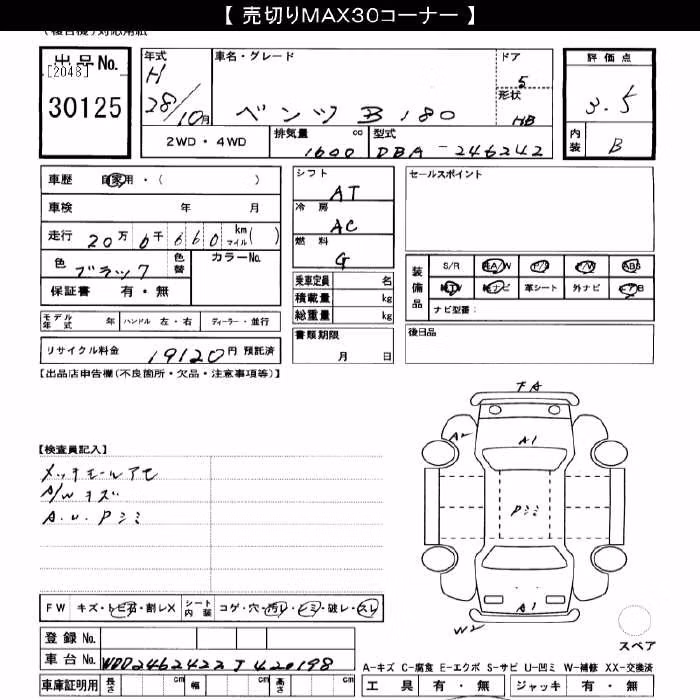 【 売切りMAX30コーナー 】
(複合機)対応用紙
出品No. [2048] 30125
年式 H 28/10月
車名・グレード ベンツ B 180
ドア 5
形状 HB
評価点 3.5
内装 B
2WD・4WD
排気量 cc 1600
型式 DBA-246242
車歴 自家用・( )
車検 年 月
走行 20万6千660 km マイル( )
色 ブラック 色替 カラーNo.
保証書 有・無
シフト AT
冷房 AC
燃料 G
乗車定員 名
積載量 kg
総重量 kg
書類期限 月 日
セールスポイント
装備品 S/R 純A/W P/S P/W ABS
純TV 純ナビ 革シート 外ナビ エアB
ナビ型番:
後日品
モデル年式 年 ハンドル 左・右 ディーラー・並行
リサイクル料金 19120円 預託済
【出品店申告欄(不良箇所・欠品・注意事項等)】
【検査員記入】
メッキモールアセ
A/Wキズ
A.U.Pシミ
FA
A2
A1
Pシミ
A1
W2
スペア
FW キズ・トビ石・割レX シート内装 コゲ・穴・汚レ・シミ・破レ・スレ
登録No.
車台No. WDD2462422J420198
車庫証明用 長さ cm 幅 cm 高さ cm
A-キズ C-腐食 E-エクボ S-サビ U-凹ミ W-補修 XX-交換済
工具 有・無 ジャッキ 有・無